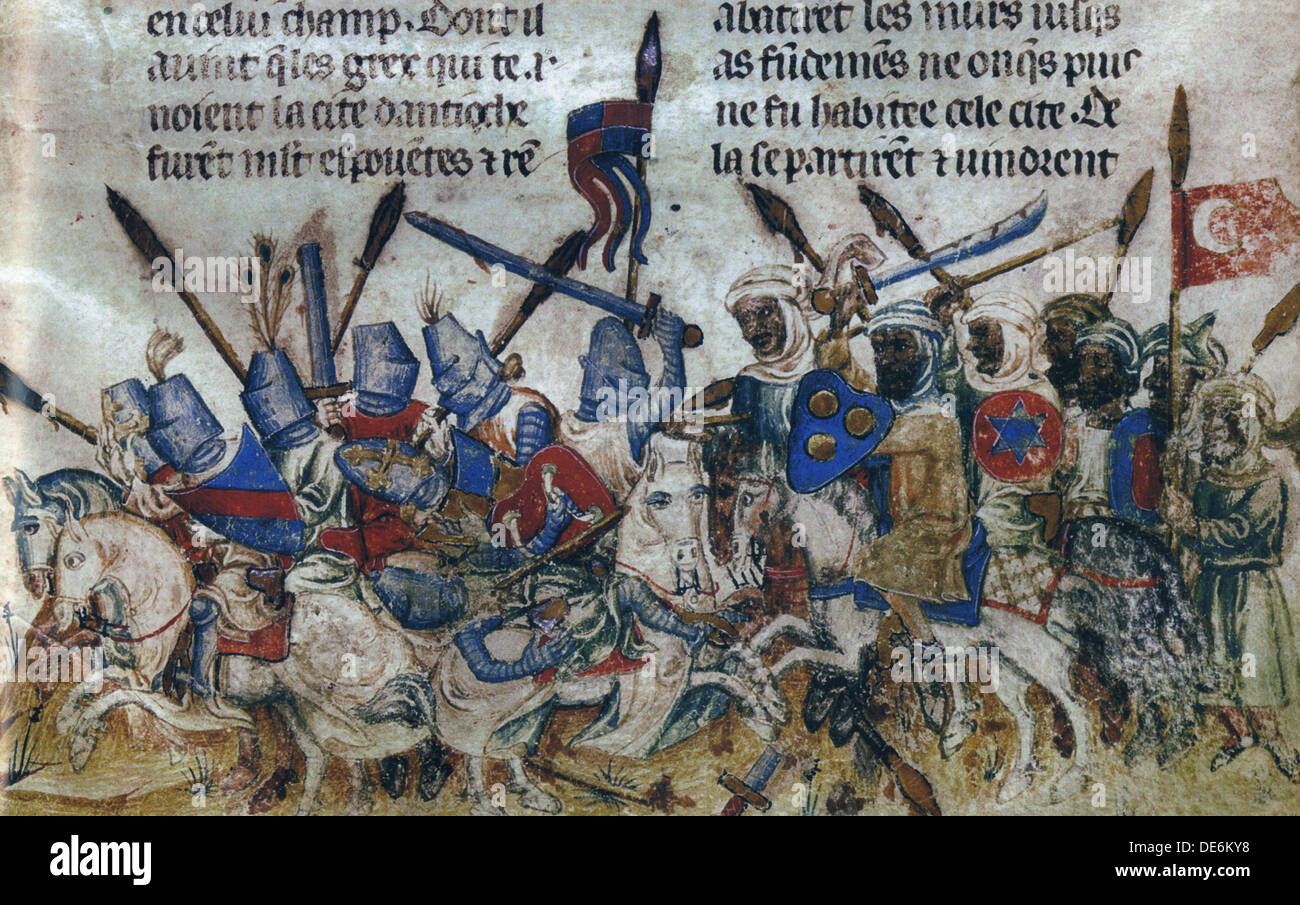 en celui champ. Dont il
auint q̃ les grex qui te.r
noient la cite dantioche
furẽt ml't espouẽtes ⁊ rẽ
abatiret les murs iusq̃s
as fũdemẽs ne onq̃s puis
ne fu habitee cele cite. De
la se partirẽt ⁊ uindrent
a
alamy
alamy
a
a
a
alamy stock photo
DE6KY8
www.alamy.com